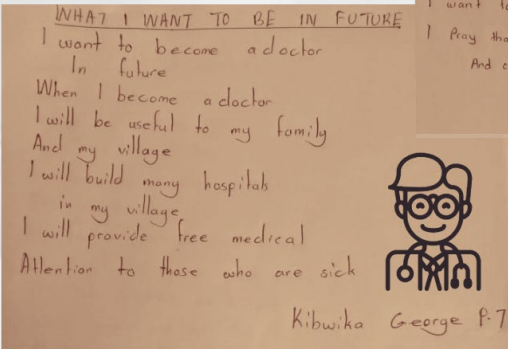 WHAT I WANT TO BE IN FUTURE
I want to become a doctor
In future
When I become a doctor
I will be useful to my family
And my village
I will build many hospitals
in my village
I will provide free medical
Attention to those who are sick
Kibwika George P.7
I want
I Pray tha
And